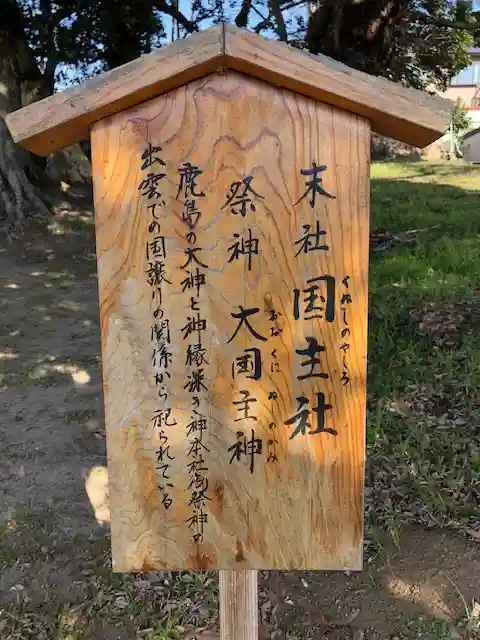 末社 国主社
くぬしのやしろ
祭神 大国主神
おおくにぬしのかみ
鹿島の大神と神縁深き神本社御祭神の
出雲での国譲りの関係から祀られている